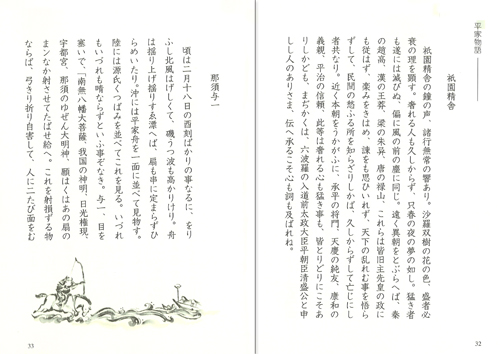 平家物語
祇園精舎
祇園精舎の鐘の声、諸行無常の響あり。沙羅双樹の花の色、盛者必
衰の理を顕す。奢れる人も久しからず、只春の夜の夢の如し。猛き者
も遂には滅びぬ、偏に風の前の塵に同じ。遠く異朝をとぶらへば、秦
の趙高、漢の王莽、梁の朱异、唐の禄山、これらは皆旧主先皇の政に
も従はず、楽みをきはめ、諫をも思ひいれず、天下の乱れむ事を悟ら
ずして、民間の愁ふる所を知らざりしかば、久しからずして亡じにし
者共なり。近く本朝をうかがふに、承平の将門、天慶の純友、康和の
義親、平治の信頼、此等は奢れる心も猛き事も、皆とりどりにこそあ
りしかども、まぢかくは、六波羅の入道前太政大臣平朝臣清盛公と申
しし人のありさま、伝へ承るこそ心も詞も及ばれね。
32
那須与一
頃は二月十八日の酉刻ばかりの事なるに、をり
ふし北風はげしくて、磯うつ波も高かりけり。舟
は揺り上げ揺りすゑ漂へば、扇も串に定まらずひ
らめいたり。沖には平家舟を一面に並べて見物す。
陸には源氏くつばみを並べてこれを見る。いづれ
もいづれも晴ならずといふ事ぞなき。与一、目を
塞いで、「南無八幡大菩薩、我国の神明、日光権現、
宇都宮、那須のゆぜん大明神、願はくはあの扇の
まンなか射させてたばせ給へ。これを射損ずる物
ならば、弓きり折り自害して、人に二たび面をむ
33